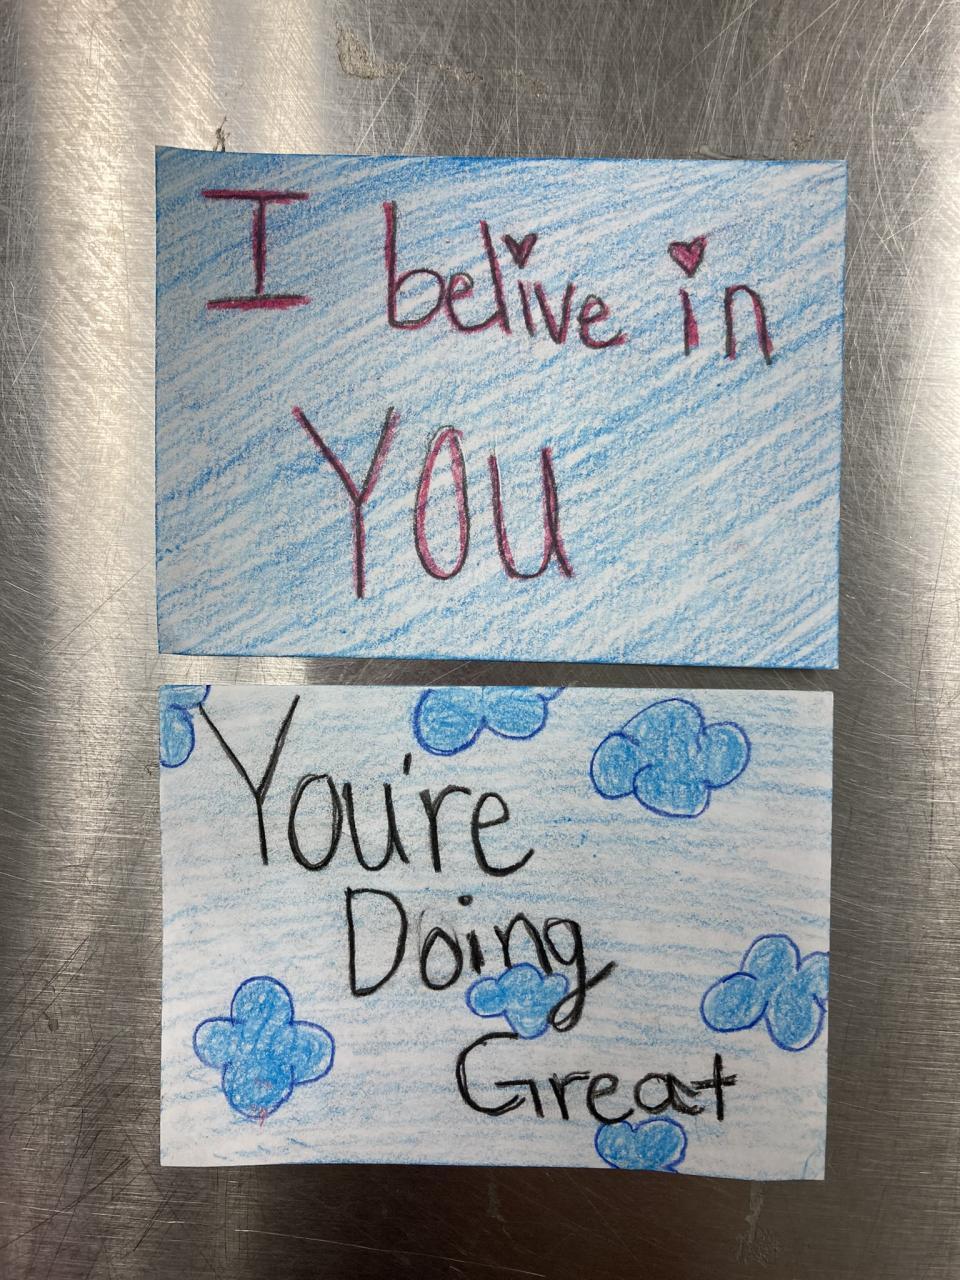 I belive in
YOU
You're
Doing
Great